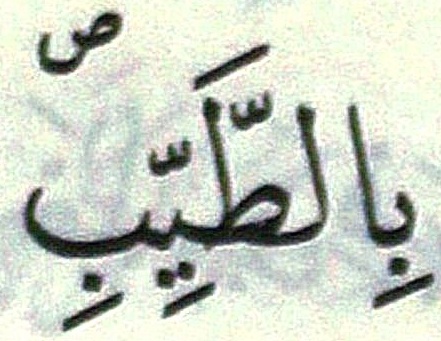 بِالطَّيِّبِ ۖ ص